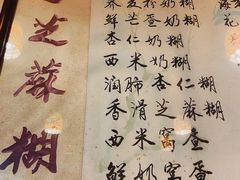 芝蔴糊
鲜芒奶糊
杏仁奶糊
西米奶糊
润肺杏仁糊
香滑芝蔴糊
西米窝蛋
鲜奶窝蛋